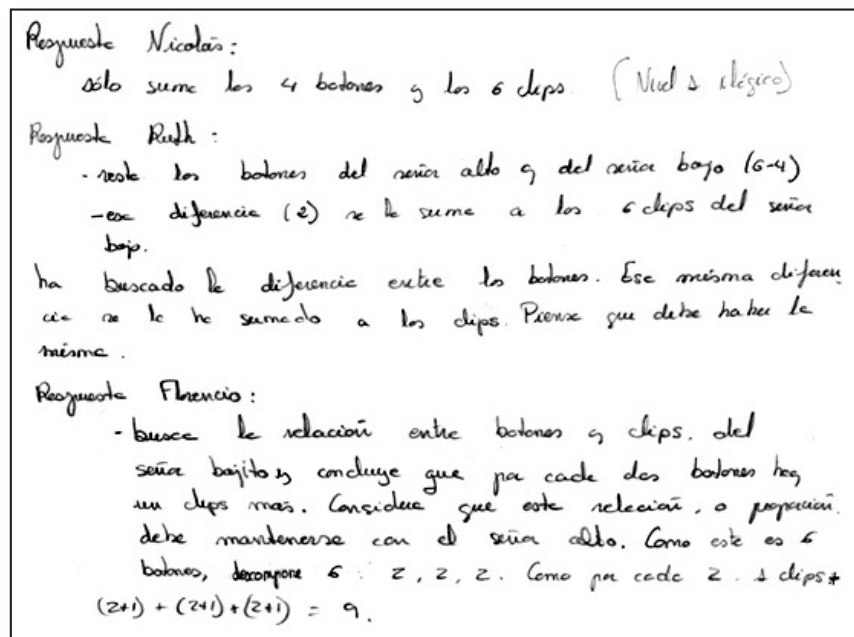 Respuesta Nicolás:
sólo suma los 4 botones y los 6 clips. (Nivel 1 ilógico)
Respuesta Ruth:
- resta los botones del señor alto y del señor bajo (6-4)
- esa diferencia (2) se la suma a los 6 clips del señor
bajo.
ha buscado la diferencia entre los botones. Esa misma diferen
cia se la ha sumado a los clips. Piensa que debe haber la
misma.
Respuesta Florencio:
- busca la relación entre botones y clips. del
señor bajito y concluye que por cada dos botones hay
un clips mas. Considera que esta relación, o proporción
debe mantenerse con el señor alto. Como este es 6
botones, descompone 6: 2, 2, 2. Como por cada 2. 1 clips +
(2+1) + (2+1) + (2+1) = 9.